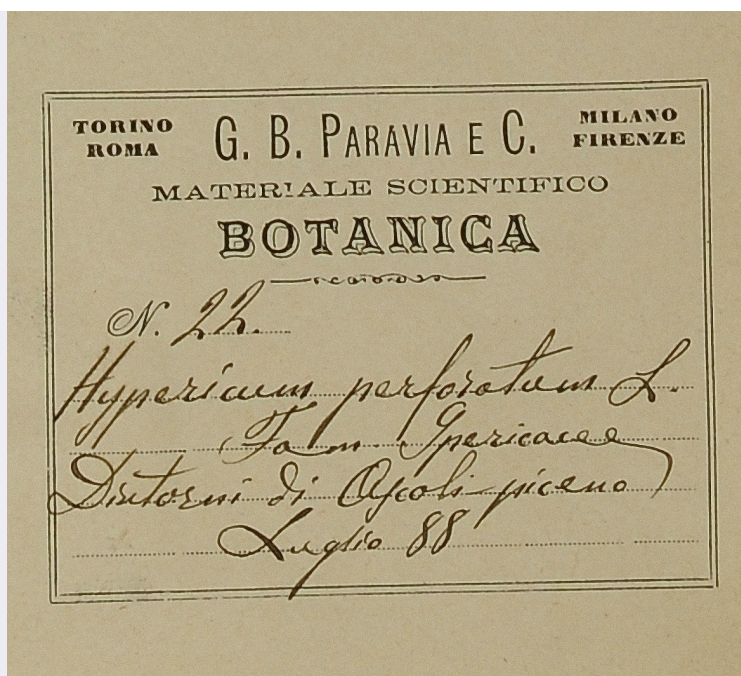 TORINO ROMA G. B. PARAVIA E C. MILANO FIRENZE
MATERIALE SCIENTIFICO
BOTANICA
N. 22.
Hypericum perforatum L.
Fam. Ipericacee
Dintorni di Ascoli piceno
Luglio 88